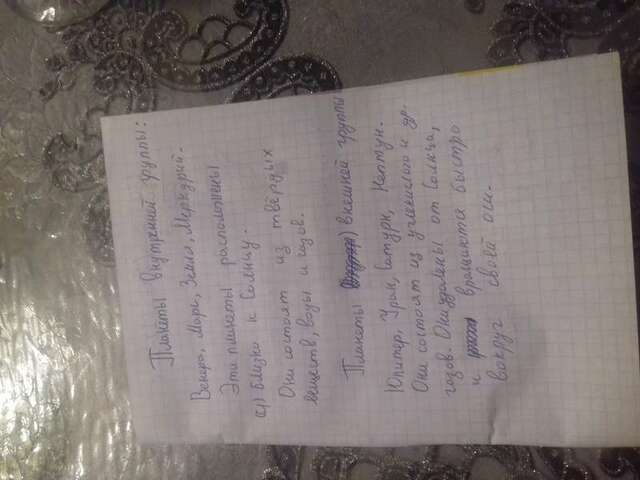 Планеты внутренней группы:
Венера, Марс, Земля, Меркурий.
Эти планеты расположены
близко к Солнцу.
Они состоят из твёрдых
веществ, воды и газов.
Планеты ) внешней группы
Юпитер, Уран, Сатурн, Нептун.
Они состоят из углекислого и др.
газов. Они удалены от Солнца,
и вращаются быстро
вокруг своей оси.